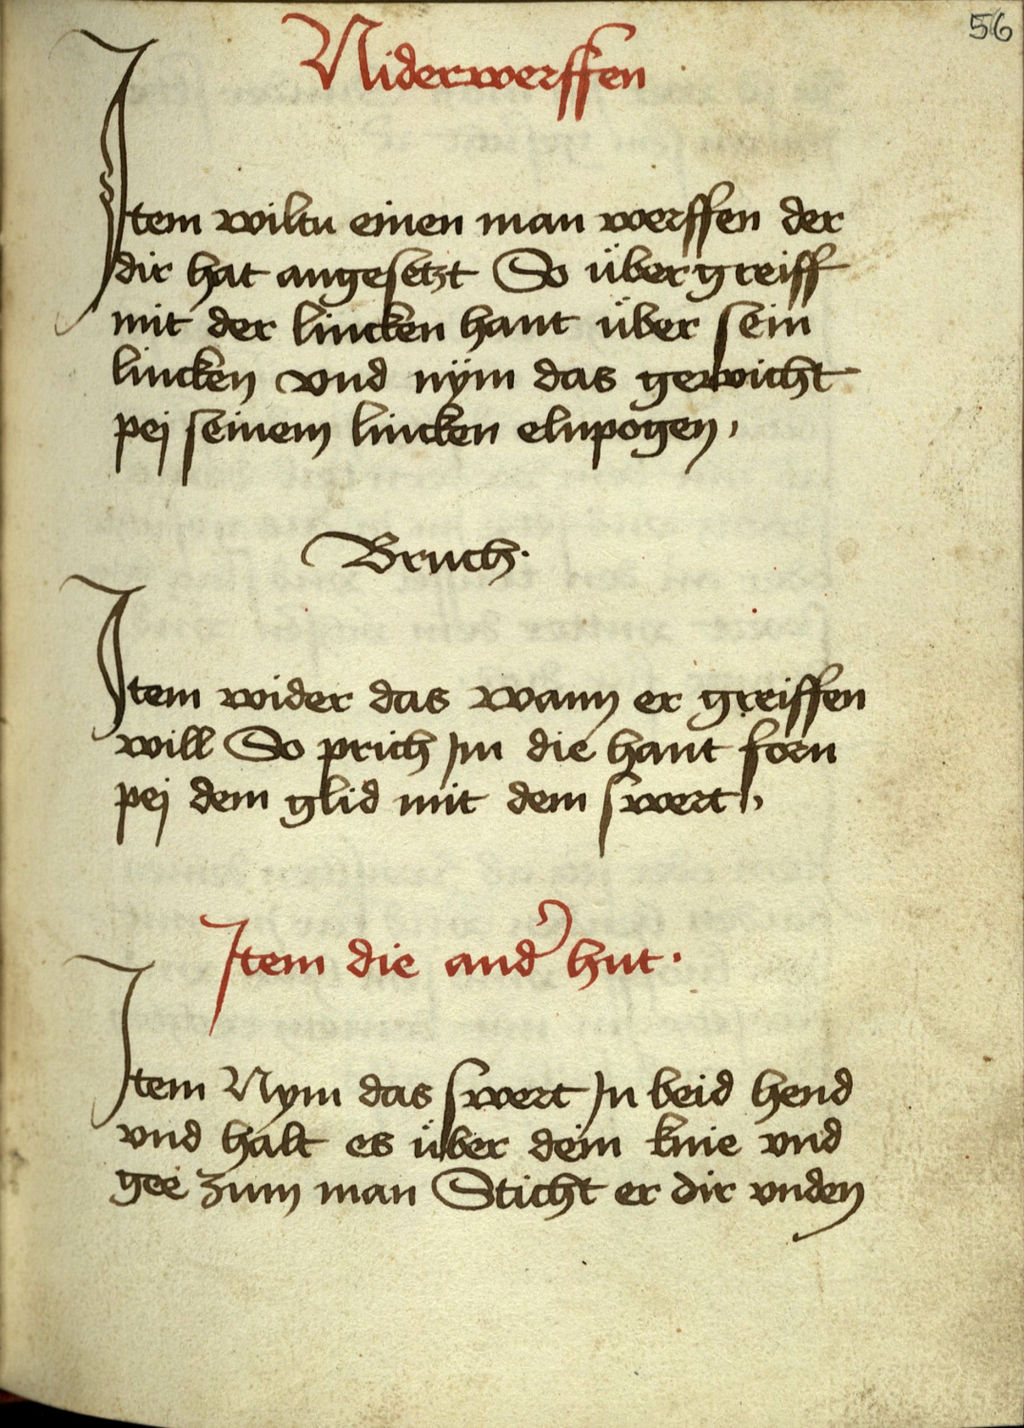 56
Niderwerffen
Item wiltu einen man werffen der
dir hat angesetzt So übergreiff
mit der lincken hant über sein
lincken vnd nÿm das gewicht
pej seinem lincken elnpogen,
Bruch.
Item wider das wann er greiffen
will So prich Im die hant forn
pej dem glid mit dem swert,
Item die and̾ hut.
Item Nym das swert In beid hend
vnd halt es über dein knie vnd
gee zum man Sticht er dir vnden